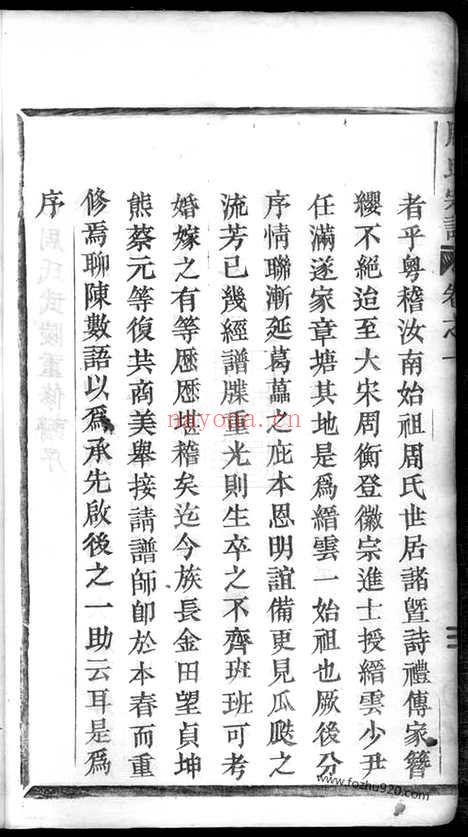 周氏宗譜 卷之一
者乎粤稽汝南始祖周氏世居諸暨詩禮傳家簪
纓不絕迨至大宋周衡登徽宗進士授縉雲少尹
任滿遂家章塘其地是爲縉雲一始祖也厥後分
序情聯漸延葛藟之庇本恩明誼備更見瓜瓞之
流芳已幾經譜牒重光則生卒之不齊班班可考
婚嫁之有等歷歷堪稽矣迄今族長金田望貞坤
熊蔡元等復共商美舉接請譜師卽於本春而重
修焉聊陳數語以爲承先啟後之一助云耳是爲
序
三
nayona.cn
www.fozhu920.com